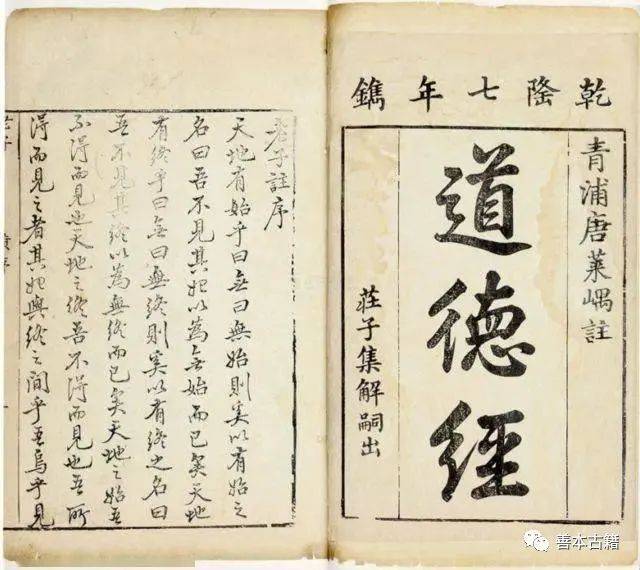 乾隆七年鐫
青浦唐萊嵎註
道德經
莊子集解嗣出
老子註序
天地有始乎曰無曰無始則奚以有始之
名曰吾不見其始以為無始而已矣天地
有終乎曰無曰無終則奚以有終之名曰
吾不見其終以為無終而已矣天地之始吾
不得而見也天地之終吾不得而見也吾所
得而見之者其始與終之間乎吾烏乎見
善本古籍